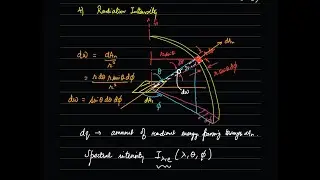 4) Radiation Intensity
dω = dAn / r²
= r dθ r sinθ dϕ / r²
dω = sinθ dθ dϕ
r sinθ
dAn
r
θ
dω
dA1
ϕ
dq → amount of radiant energy passing through dAn..
Spectral intensity Iλ,e (λ, θ, ϕ)